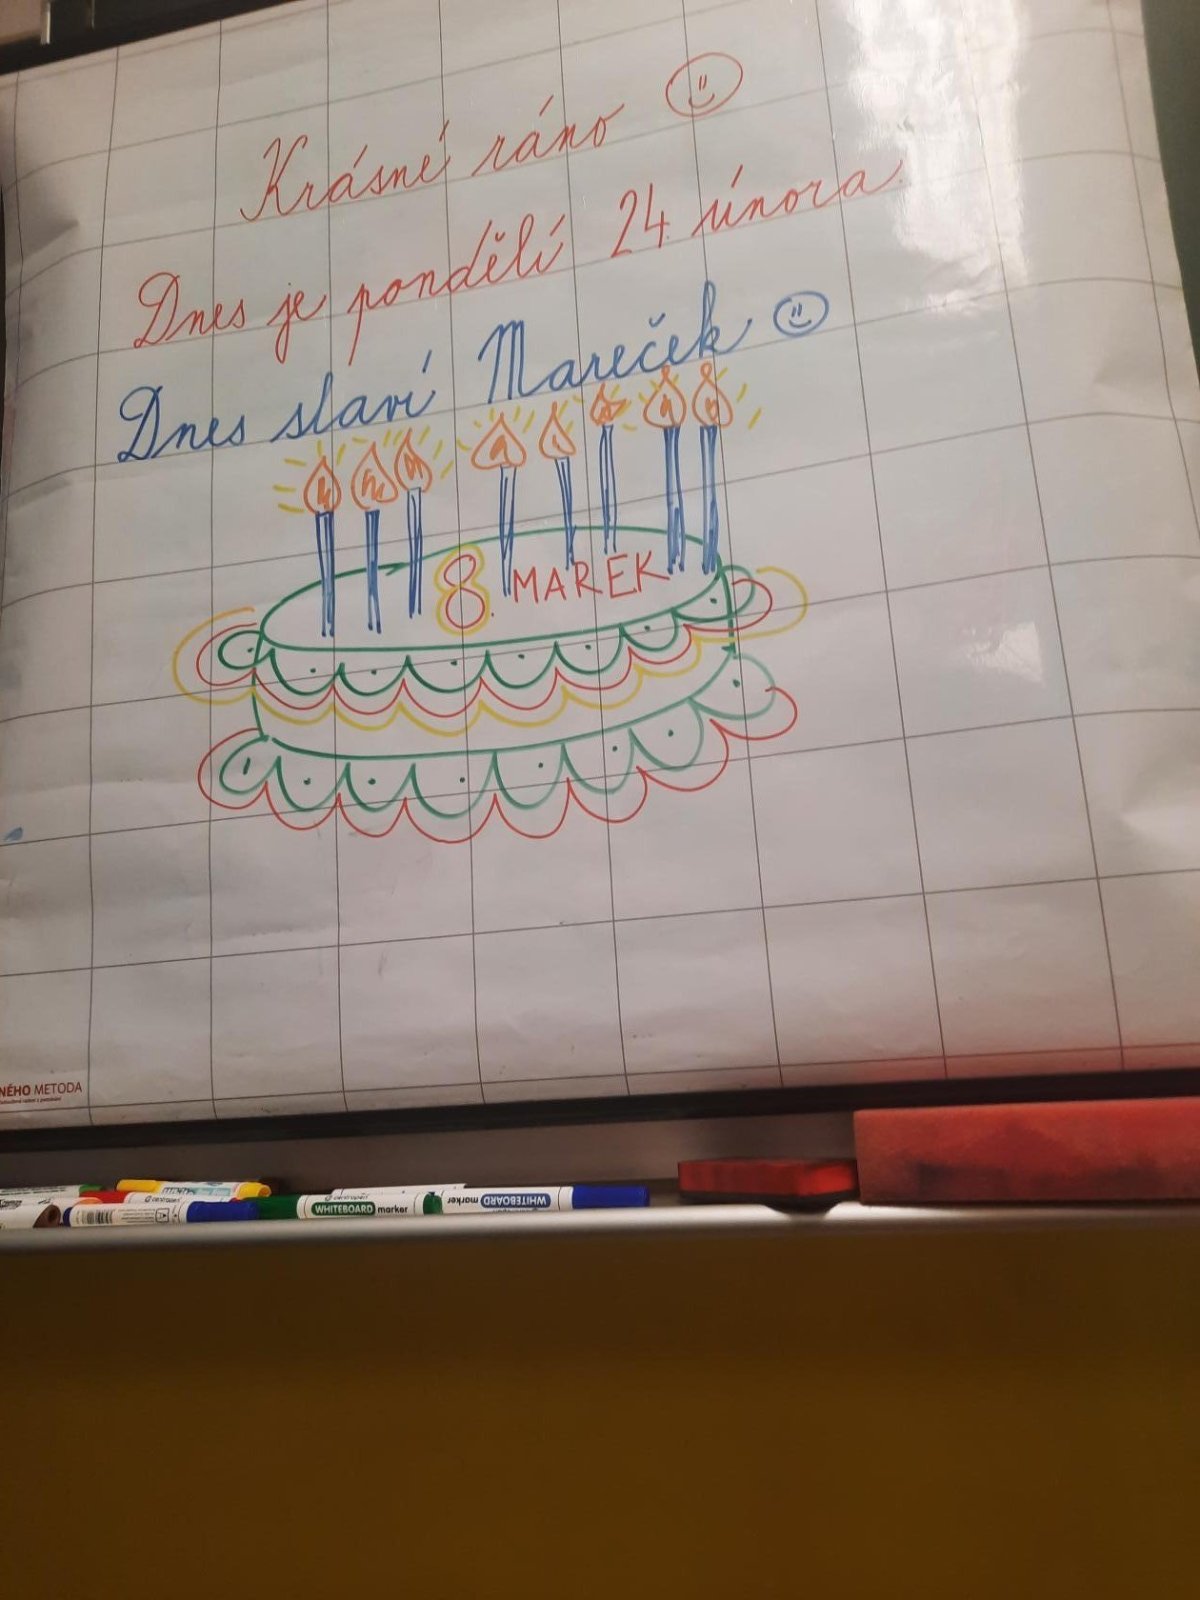 Krásné ráno
Dnes je pondělí 24. února.
Dnes slaví Mareček
8. MAREK
NÉHO METODA
centropen
WHITEBOARD marker
WHITEBOARD marker